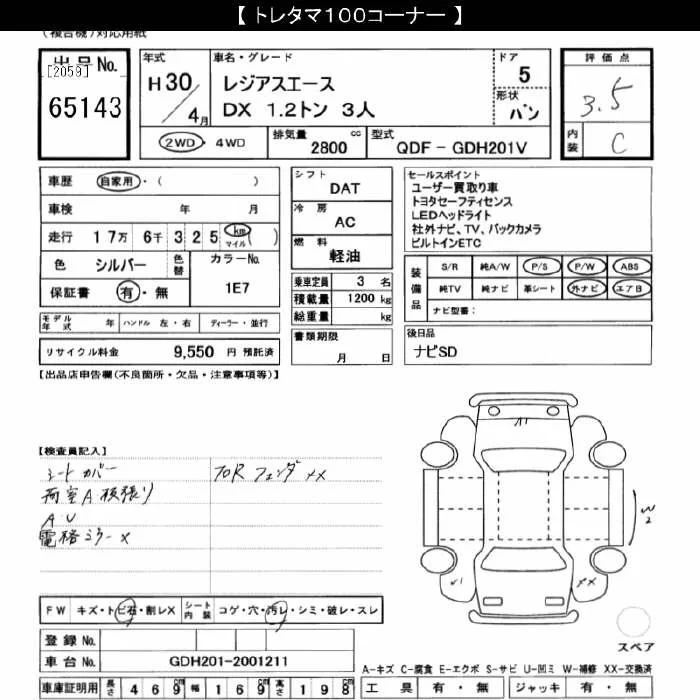 【 トレタマ100コーナー 】
(複合機)対応用紙
出品No.
[2059]
65143
年式
H30/4月
車名・グレード
レジアスエース
DX 1.2トン 3人
ドア
5
形状
バン
評価点
3.5
内装
C
2WD・4WD
排気量
2800 cc
型式
QDF - GDH201V
車歴 自家用・( )
車検 年 月
走行 17万 6千 3 2 5 km マイル ( )
色 シルバー 色替
カラーNo.
1E7
保証書 有・無
モデル年式 年 ハンドル 左・右 ディーラー・並行
リサイクル料金 9,550 円 預託済
シフト
DAT
冷房
AC
燃料
軽油
乗車定員 3 名
積載量 1200 kg
総重量 kg
書類期限
月 日
セールスポイント
ユーザー買取り車
トヨタセーフティセンス
LEDヘッドライト
社外ナビ、TV、バックカメラ
ビルトインETC
装備品
S/R 純A/W P/S P/W ABS
純TV 純ナビ 革シート 外ナビ エアB
ナビ型番:
後日品
ナビSD
【出品店申告欄(不良箇所・欠品・注意事項等)】
【検査員記入】
シートカバー
荷室A 板張り
A U
電格ミラーX
フロRフェンダXX
A1
W2
U1
XX
FW キズ・トビ石・割レX
シート内装 コゲ・穴・汚レ・シミ・破レ・スレ
登録No.
車台No. GDH201-2001211
車庫証明用 長さ 469cm 幅 169cm 高さ 198cm
スペア
A-キズ C-腐食 E-エクボ S-サビ U-凹ミ W-補修 XX-交換済
工具 有・無 ジャッキ 有・無